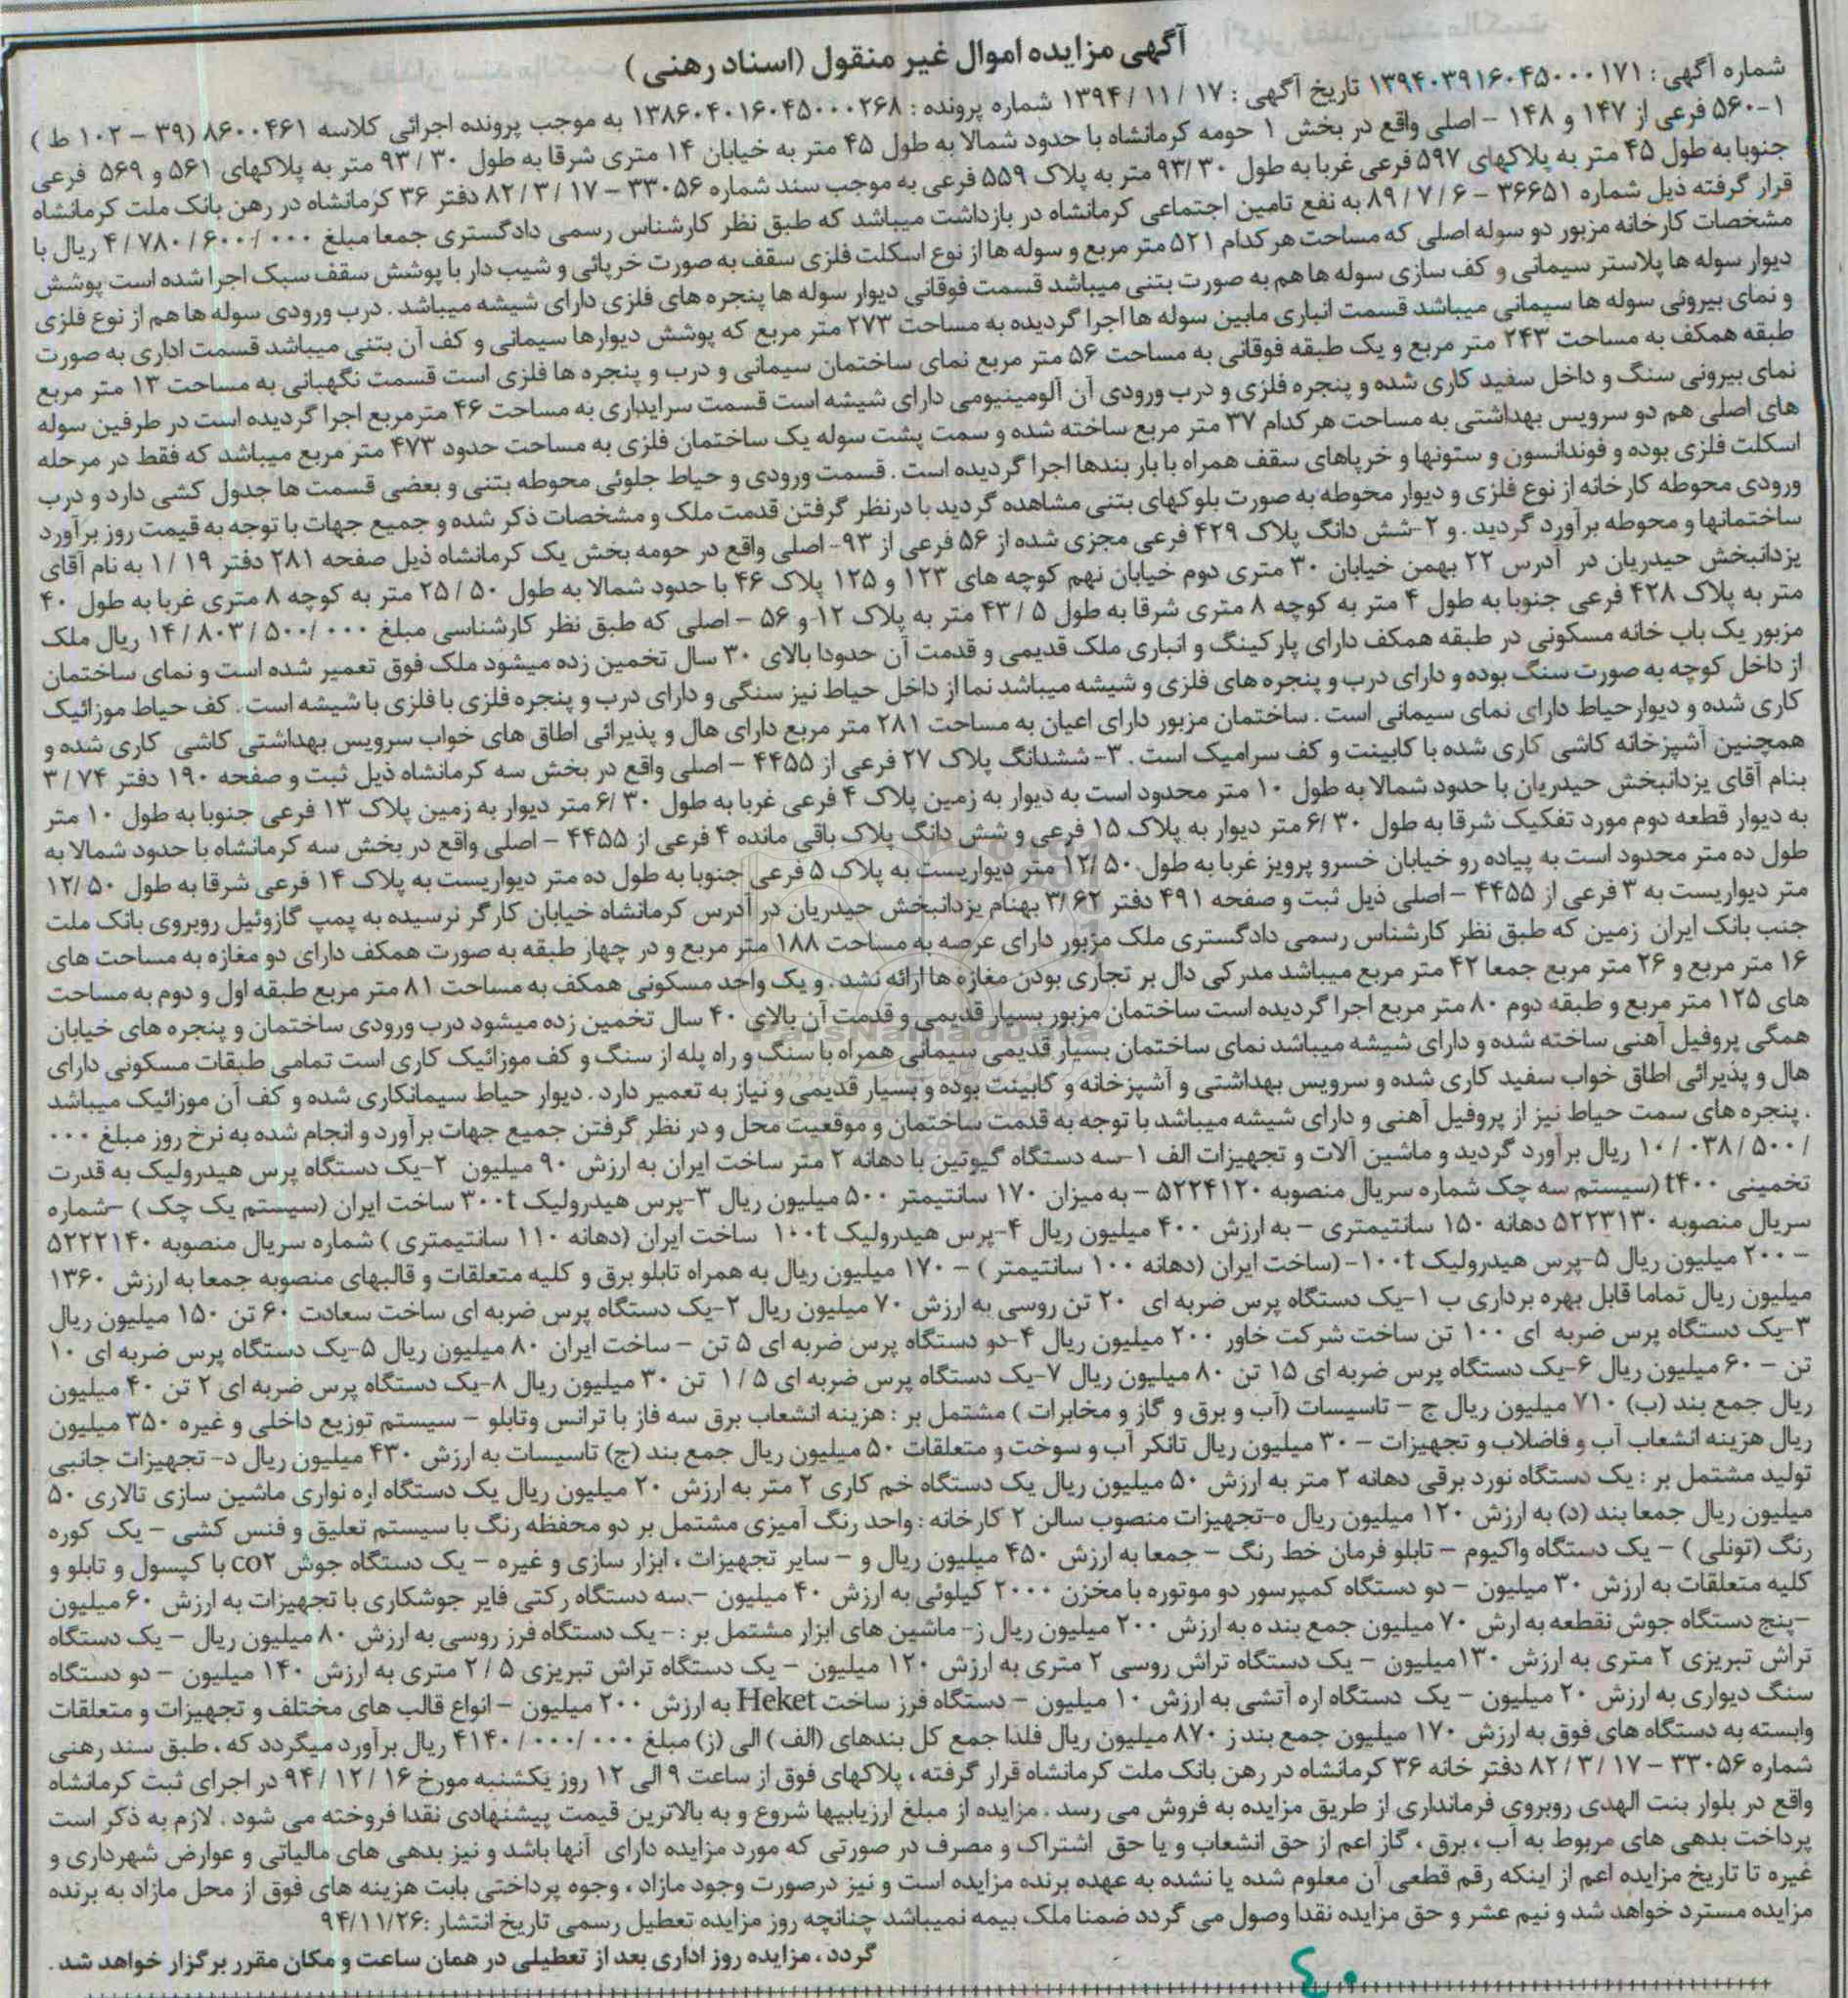 آگهی مزایده اموال غیر منقول (اسناد رهنی)
شماره آگهی : ۱۳۹۴۰۳۹۱۶۰۴۵۰۰۰۱۷۱ تاریخ آگهی : ۱۷ / ۱۱ / ۱۳۹۴ شماره پرونده : ۱۳۸۶۰۴۰۱۶۰۴۵۰۰۰۲۶۸ به موجب پرونده اجرائی کلاسه ۸۶۰۰۴۶۱ (۳۹ – ۱۰۲ ط )
۱-۵۶۰ فرعی از ۱۴۷ و ۱۴۸ – اصلی واقع در بخش ۱ حومه کرمانشاه با حدود شمالا به طول ۴۵ متر به خیابان ۱۴ متری شرقا به طول ۳۰ / ۹۳ متر به پلاکهای ۵۶۱ و ۵۶۹ فرعی
جنوبا به طول ۴۵ متر به پلاکهای ۵۹۷ فرعی غربا به طول ۳۰ /۹۳ متر به پلاک ۵۵۹ فرعی به موجب سند شماره ۳۳۰۵۶ – ۱۷ / ۳ / ۸۲ دفتر ۳۶ کرمانشاه در رهن بانک ملت کرمانشاه
قرار گرفته ذیل شماره ۳۶۶۵۱ – ۶ / ۷ / ۸۹ به نفع تامین اجتماعی کرمانشاه در بازداشت میباشد که طبق نظر کارشناس رسمی دادگستری جمعا مبلغ ۰۰۰ /۶۰۰ / ۷۸۰ / ۴ ریال با
مشخصات کارخانه مزبور دو سوله اصلی که مساحت هر کدام ۵۲۱ متر مربع و سوله ها از نوع اسکلت فلزی سقف به صورت خرپائی و شیب دار با پوشش سقف سبک اجرا شده است پوشش
دیوار سوله ها پلاستر سیمانی و کف سازی سوله ها هم به صورت بتنی میباشد قسمت فوقانی دیوار سوله ها پنجره های فلزی دارای شیشه میباشد . درب ورودی سوله ها هم از نوع فلزی
و نمای بیرونی سوله ها سیمانی میباشد قسمت انباری مابین سوله ها اجرا گردیده به مساحت ۲۷۳ متر مربع که پوشش دیوارها سیمانی و کف آن بتنی میباشد قسمت اداری به صورت
طبقه همکف به مساحت ۲۴۳ متر مربع و یک طبقه فوقانی به مساحت ۵۶ متر مربع نمای ساختمان سیمانی و درب و پنجره ها فلزی است قسمت نگهبانی به مساحت ۱۳ متر مربع
نمای بیرونی سنگ و داخل سفید کاری شده و پنجره فلزی و درب ورودی آن آلومینیومی دارای شیشه است قسمت سرایداری به مساحت ۴۶ مترمربع اجرا گردیده است در طرفین سوله
های اصلی هم دو سرویس بهداشتی به مساحت هر کدام ۳۷ متر مربع ساخته شده و سمت پشت سوله یک ساختمان فلزی به مساحت حدود ۴۷۳ متر مربع میباشد که فقط در مرحله
اسکلت فلزی بوده و فوندانسون و ستونها و خرپاهای سقف همراه با باربندها اجرا گردیده است . قسمت ورودی و حیاط جلوئی محوطه بتنی و بعضی قسمت ها جدول کشی دارد و درب
ورودی محوطه کارخانه از نوع فلزی و دیوار محوطه به صورت بلوکهای بتنی مشاهده گردید با درنظر گرفتن قدمت ملک و مشخصات ذکر شده و جمیع جهات با توجه به قیمت روز برآورد
ساختمانها و محوطه برآورد گردید . و ۲-شش دانگ پلاک ۴۲۹ فرعی مجزی شده از ۵۶ فرعی از ۹۳- اصلی واقع در حومه بخش یک کرمانشاه ذیل صفحه ۲۸۱ دفتر ۱۹ / ۱ به نام آقای
یزدانبخش حیدریان در آدرس ۲۲ بهمن خیابان ۳۰ متری دوم خیابان نهم کوچه های ۱۲۳ و ۱۲۵ پلاک ۴۶ با حدود شمالا به طول ۵۰ / ۲۵ متر به کوچه ۸ متری غربا به طول ۴۰
متر به پلاک ۴۲۸ فرعی جنوبا به طول ۴ متر به کوچه ۸ متری شرقا به طول ۵ / ۴۳ متر به پلاک ۱۲-و ۵۶ – اصلی که طبق نظر کارشناسی مبلغ ۰۰۰ /۵۰۰ / ۸۰۳ / ۱۴ ریال ملک
مزبور یک باب خانه مسکونی در طبقه همکف دارای پارکینگ و انباری ملک قدیمی و قدمت آن حدودا بالای ۳۰ سال تخمین زده میشود ملک فوق تعمیر شده است و نمای ساختمان
از داخل کوچه به صورت سنگ بوده و دارای درب و پنجره های فلزی و شیشه میباشد نما از داخل حیاط نیز سنگی و دارای درب و پنجره فلزی با فلزی با شیشه است . کف حیاط موزائیک
کاری شده و دیوار حیاط دارای نمای سیمانی است . ساختمان مزبور دارای اعیان به مساحت ۲۸۱ متر مربع دارای هال و پذیرائی اطاق های خواب سرویس بهداشتی کاشی کاری شده و
همچنین آشپزخانه کاشی کاری شده با کابینت و کف سرامیک است . ۳- ششدانگ پلاک ۲۷ فرعی از ۴۴۵۵ – اصلی واقع در بخش سه کرمانشاه ذیل ثبت و صفحه ۱۹۰ دفتر ۷۴ / ۳
بنام آقای یزدانبخش حیدریان با حدود شمالا به طول ۱۰ متر محدود است به دیوار به زمین پلاک ۴ فرعی غربا به طول ۳۰ /۶ متر دیوار به زمین پلاک ۱۳ فرعی جنوبا به طول ۱۰ متر
به دیوار قطعه دوم مورد تفکیک شرقا به طول ۳۰ /۶ متر دیوار به پلاک ۱۵ فرعی و شش دانگ پلاک باقی مانده ۴ فرعی از ۴۴۵۵ – اصلی واقع در بخش سه کرمانشاه با حدود شمالا به
طول ده متر محدود است به پیاده رو خیابان خسرو پرویز غربا به طول ۵۰ /۱۲ متر دیواریست به پلاک ۵ فرعی جنوبا به طول ده متر دیواریست به پلاک ۱۴ فرعی شرقا به طول ۵۰ /۱۲
متر دیواریست به ۳ فرعی از ۴۴۵۵ – اصلی ذیل ثبت و صفحه ۴۹۱ دفتر ۶۲ /۳ بهنام یزدانبخش حیدریان در آدرس کرمانشاه خیابان کارگر نرسیده به پمپ گازوئیل روبروی بانک ملت
جنب بانک ایران زمین که طبق نظر کارشناس رسمی دادگستری ملک مزبور دارای عرصه به مساحت ۱۸۸ متر مربع و در چهار طبقه به صورت همکف دارای دو مغازه به مساحت های
۱۶ متر مربع و ۲۶ متر مربع جمعا ۴۲ متر مربع میباشد مدرکی دال بر تجاری بودن مغازه ها ارائه نشد . و یک واحد مسکونی همکف به مساحت ۸۱ متر مربع طبقه اول و دوم به مساحت
های ۱۲۵ متر مربع و طبقه دوم ۸۰ متر مربع اجرا گردیده است ساختمان مزبور بسیار قدیمی و قدمت آن بالای ۴۰ سال تخمین زده میشود درب ورودی ساختمان و پنجره های خیابان
همگی پروفیل آهنی ساخته شده و دارای شیشه میباشد نمای ساختمان بسیار قدیمی سیمانی همراه با سنگ و راه پله از سنگ و کف موزائیک کاری است تمامی طبقات مسکونی دارای
هال و پذیرائی اطاق خواب سفید کاری شده و سرویس بهداشتی و آشپزخانه و کابینت بوده و بسیار قدیمی و نیاز به تعمیر دارد . دیوار حیاط سیمانکاری شده و کف آن موزائیک میباشد
. پنجره های سمت حیاط نیز از پروفیل آهنی و دارای شیشه میباشد با توجه به قدمت ساختمان و موقعیت محل و در نظر گرفتن جمیع جهات برآورد و انجام شده به نرخ روز مبلغ ۰۰۰
/ ۵۰۰ / ۰۳۸ / ۱۰ ریال برآورد گردید و ماشین آلات و تجهیزات الف ۱-سه دستگاه گیوتین با دهانه ۲ متر ساخت ایران به ارزش ۹۰ میلیون ۲-یک دستگاه پرس هیدرولیک به قدرت
تخمینی t۴۰۰ (سیستم سه چک شماره سریال منصوبه ۵۲۲۴۱۲۰ – به میزان ۱۷۰ سانتیمتر ۵۰۰ میلیون ریال ۳-پرس هیدرولیک ۳۰۰t ساخت ایران (سیستم یک چک ) –شماره
سریال منصوبه ۵۲۲۳۱۳۰ دهانه ۱۵۰ سانتیمتری – به ارزش ۴۰۰ میلیون ریال ۴-پرس هیدرولیک ۱۰۰t ساخت ایران (دهانه ۱۱۰ سانتیمتری ) شماره سریال منصوبه ۵۲۲۲۱۴۰
– ۲۰۰ میلیون ریال ۵-پرس هیدرولیک ۱۰۰t-(ساخت ایران (دهانه ۱۰۰ سانتیمتر ) – ۱۷۰ میلیون ریال به همراه تابلو برق و کلیه متعلقات و قالبهای منصوبه جمعا به ارزش ۱۳۶۰
میلیون ریال تماما قابل بهره برداری ب ۱-یک دستگاه پرس ضربه ای ۲۰ تن روسی به ارزش ۷۰ میلیون ریال ۲-یک دستگاه پرس ضربه ای ساخت سعادت ۶۰ تن ۱۵۰ میلیون ریال
۳-یک دستگاه پرس ضربه ای ۱۰۰ تن ساخت شرکت خاور ۲۰۰ میلیون ریال ۴-دو دستگاه پرس ضربه ای ۵ تن – ساخت ایران ۸۰ میلیون ریال ۵-یک دستگاه پرس ضربه ای ۱۰
تن – ۶۰ میلیون ریال ۶-یک دستگاه پرس ضربه ای ۱۵ تن ۸۰ میلیون ریال ۷-یک دستگاه پرس ضربه ای ۵ / ۱ تن ۳۰ میلیون ریال ۸-یک دستگاه پرس ضربه ای ۲ تن ۴۰ میلیون
ریال جمع بند (ب) ۷۱۰ میلیون ریال ج – تاسیسات (آب و برق و گاز و مخابرات ) مشتمل بر : هزینه انشعاب برق سه فاز با ترانس وتابلو – سیستم توزیع داخلی و غیره ۳۵۰ میلیون
ریال هزینه انشعاب آب و فاضلاب و تجهیزات – ۳۰ میلیون ریال تانکر آب و سوخت و متعلقات ۵۰ میلیون ریال جمع بند (ج) تاسیسات به ارزش ۴۳۰ میلیون ریال د- تجهیزات جانبی
تولید مشتمل بر : یک دستگاه نورد برقی دهانه ۲ متر به ارزش ۵۰ میلیون ریال یک دستگاه خم کاری ۲ متر به ارزش ۲۰ میلیون ریال یک دستگاه اره نواری ماشین سازی تالاری ۵۰
میلیون ریال جمعا بند (د) به ارزش ۱۲۰ میلیون ریال ه-تجهیزات منصوب سالن ۲ کارخانه : واحد رنگ آمیزی مشتمل بر دو محفظه رنگ با سیستم تعلیق و فنس کشی – یک کوره
رنگ (تونلی ) – یک دستگاه واکیوم – تابلو فرمان خط رنگ – جمعا به ارزش ۴۵۰ میلیون ریال و – سایر تجهیزات ، ابزار سازی و غیره – یک دستگاه جوش CO۲ با کپسول و تابلو و
کلیه متعلقات به ارزش ۳۰ میلیون – دو دستگاه کمپرسور دو موتوره با مخزن ۲۰۰۰ کیلوئی به ارزش ۴۰ میلیون – سه دستگاه رکتی فایر جوشکاری با تجهیزات به ارزش ۶۰ میلیون
–پنج دستگاه جوش نقطعه به ارش ۷۰ میلیون جمع بند ه به ارزش ۲۰۰ میلیون ریال ز- ماشین های ابزار مشتمل بر : – یک دستگاه فرز روسی به ارزش ۸۰ میلیون ریال – یک دستگاه
تراش تبریزی ۲ متری به ارزش ۱۳۰میلیون – یک دستگاه تراش روسی ۲ متری به ارزش ۱۲۰ میلیون – یک دستگاه تراش تبریزی ۵ / ۲ متری به ارزش ۱۴۰ میلیون – دو دستگاه
سنگ دیواری به ارزش ۲۰ میلیون – یک دستگاه اره آتشی به ارزش ۱۰ میلیون – دستگاه فرز ساخت Heket به ارزش ۲۰۰ میلیون – انواع قالب های مختلف و تجهیزات و متعلقات
وابسته به دستگاه های فوق به ارزش ۱۷۰ میلیون جمع بند ز ۸۷۰ میلیون ریال فلذا جمع کل بندهای (الف ) الی (ز) مبلغ ۰۰۰ /۰۰۰ / ۴۱۴۰ ریال برآورد میگردد که ، طبق سند رهنی
شماره ۳۳۰۵۶ – ۱۷ / ۳ / ۸۲ دفتر خانه ۳۶ کرمانشاه در رهن بانک ملت کرمانشاه قرار گرفته ، پلاکهای فوق از ساعت ۹ الی ۱۲ روز یکشنبه مورخ ۱۶ / ۱۲ / ۹۴ در اجرای ثبت کرمانشاه
واقع در بلوار بنت الهدی روبروی فرمانداری از طریق مزایده به فروش می رسد . مزایده از مبلغ ارزیابیها شروع و به بالاترین قیمت پیشنهادی نقدا فروخته می شود . لازم به ذکر است
پرداخت بدهی های مربوط به آب ، برق ، گاز اعم از حق انشعاب و یا حق اشتراک و مصرف در صورتی که مورد مزایده دارای آنها باشد و نیز بدهی های مالیاتی و عوارض شهرداری و
غیره تا تاریخ مزایده اعم از اینکه رقم قطعی آن معلوم شده یا نشده به عهده برنده مزایده است و نیز درصورت وجود مازاد ، وجوه پرداختی بابت هزینه های فوق از محل مازاد به برنده
مزایده مسترد خواهد شد و نیم عشر و حق مزایده نقدا وصول می گردد ضمنا ملک بیمه نمیباشد چنانچه روز مزایده تعطیل رسمی تاریخ انتشار :۹۴/۱۱/۲۶
گردد ، مزایده روز اداری بعد از تعطیلی در همان ساعت و مکان مقرر برگزار خواهد شد .
ParsNamadData
۴۰